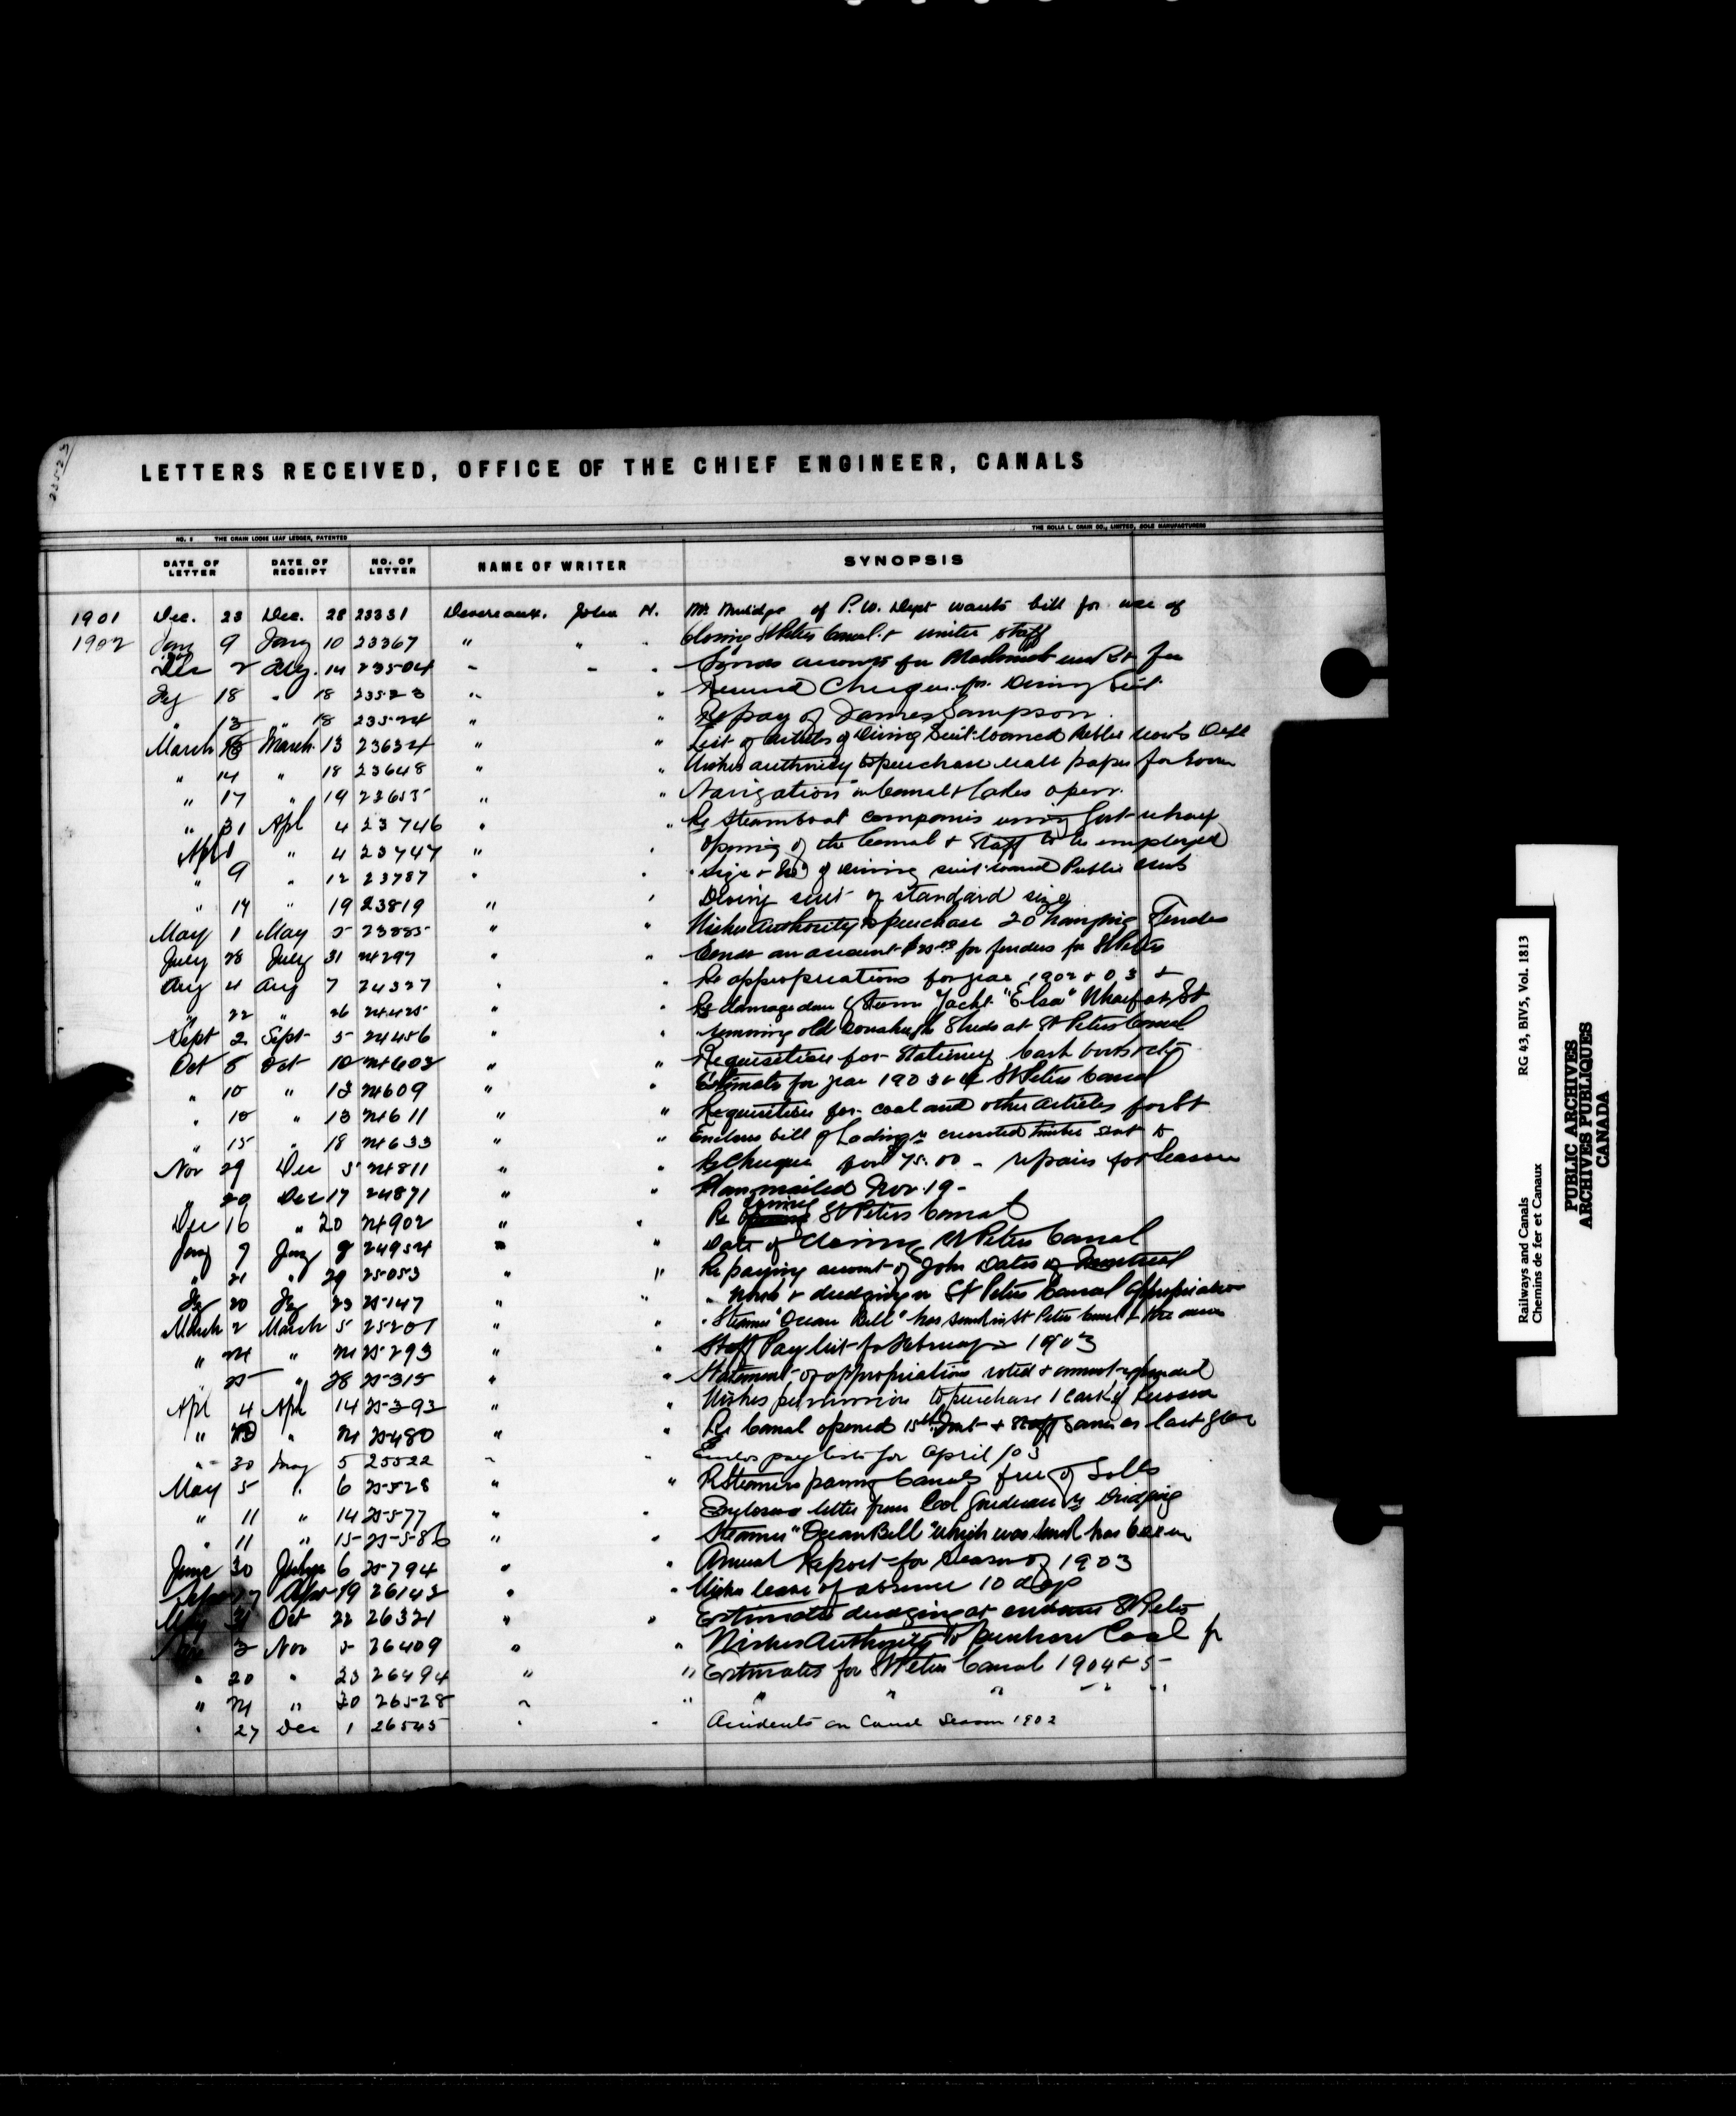 23523
LETTERS RECEIVED, OFFICE OF THE CHIEF ENGINEER, CANALS
NO. 5 THE CRAIN LOOSE LEAF LEDGER, PATENTED THE ROLLA L. CRAIN CO., LIMITED, SOLE MANUFACTURERS
DATE OF LETTER DATE OF RECEIPT NO. OF LETTER NAME OF WRITER SYNOPSIS
1901 Dec. 23 Dec. 28 23331 Devereaux. John H. Mr of P.W. Dept wants bill for use of
1902 Jany 9 Jany 10 23367 " " " Closing St Peters Canal. & winter staff
2 14 23504 " " " accounts for
Fey 18 " 18 23523 " " Cheque for Diving Suit
" 13 " 18 23524 " " Re pay of James Sampson
March March 13 23634 " " List of articles of Diving Suit loaned Public Works Dept
" 14 " 18 23648 " " Wishes authority to purchase wall paper for
" 17 " 19 23655 " " Navigation in Canal & Lakes open.
" 31 Apl 4 23746 " " Re Steamboat companies using Govt wharf
Apl 1 " 4 23747 " " Opening of the Canal & Staff to be employed
" 9 " 12 23787 " " " size & of diving suit loaned Public Works
" 14 " 19 23819 " " Diving suit of standard size
May 1 May 5 23885 " " Wishes Authority to purchase 20 hanging Fenders
July 28 July 31 24297 " " Sends an account for fenders for St Peters
Aug 4 Aug 7 24327 " " Re appropriations for year 1902 & 03 &
" 22 " 26 24425 " " Re damage done by Steam Yacht "Elsa" Wharf at St
Sept 2 Sept 5 24456 " " " removing old Sheds at St Peters Canal
Oct 8 Oct 10 24603 " " Requisition for Stationery Cash books etc
" 10 " 13 24609 " " Estimates for year 1903 & 4 St Peters Canal
" 10 " 13 24611 " " Requisition for coal and other articles for St
" 15 " 18 24633 " " Encloses bill of Lading re creosoted timber sent to
Nov 29 Dec 5 24811 " " Re Cheque for 75.00 - repairs for Season
" 20 Dec 17 24871 " " Plan mailed Nov. 19 -
Dec 16 " 20 24902 " " Re closing St Peters Canal
Jany 7 Jany 9 24954 " " Date of Closing St Peters Canal
" 21 " 29 25053 " " Re paying account of John Dates of Montreal
Fey 20 Fey 23 25147 " " " work & dredging in St Peters Canal Appropriation
March 2 March 5 25201 " " " Steamer "Ocean Bell" has sunk in St Peters Canal &
" 24 " 24 25293 " " Staff Pay list for February 1903
" 25 " 28 25315 " " Statement of appropriations voted & amount expended
Apl 4 Apl 14 25393 " " Wishes permission to purchase 1 cask of
" " 24 25480 " " Re Canal opened 15th Inst & Staff same as last year
" 30 May 5 25522 " " Encloses pay lists for April/03
May 5 " 6 25528 " " Re Steamers passing Canals free of Tolls
" 11 " 14 25577 " " Encloses letter from re Dredging
" 11 " 15 25586 " " Steamer "Ocean Bell" which was sunk has been
June 30 6 25794 " " Annual Report for Season of 1903
Sept 17 Sept 19 26142 " " Wishes leave of absence 10 days
Oct 22 26321 " " Estimate dredging at entrance St Peters
3 Nov 5 26409 " " Wishes Authority to purchase Coal fr
" 20 " 23 26494 " " Estimates for St Peters Canal 1904 & 5 -
" 24 " 30 26528 " " " " " " "
" 27 Dec 1 26545 " " Accidents on Canal Season 1902
Railways and Canals RG 43, BIV5, Vol. 1813
Chemins de fer et Canaux
PUBLIC ARCHIVES
ARCHIVES PUBLIQUES
CANADA